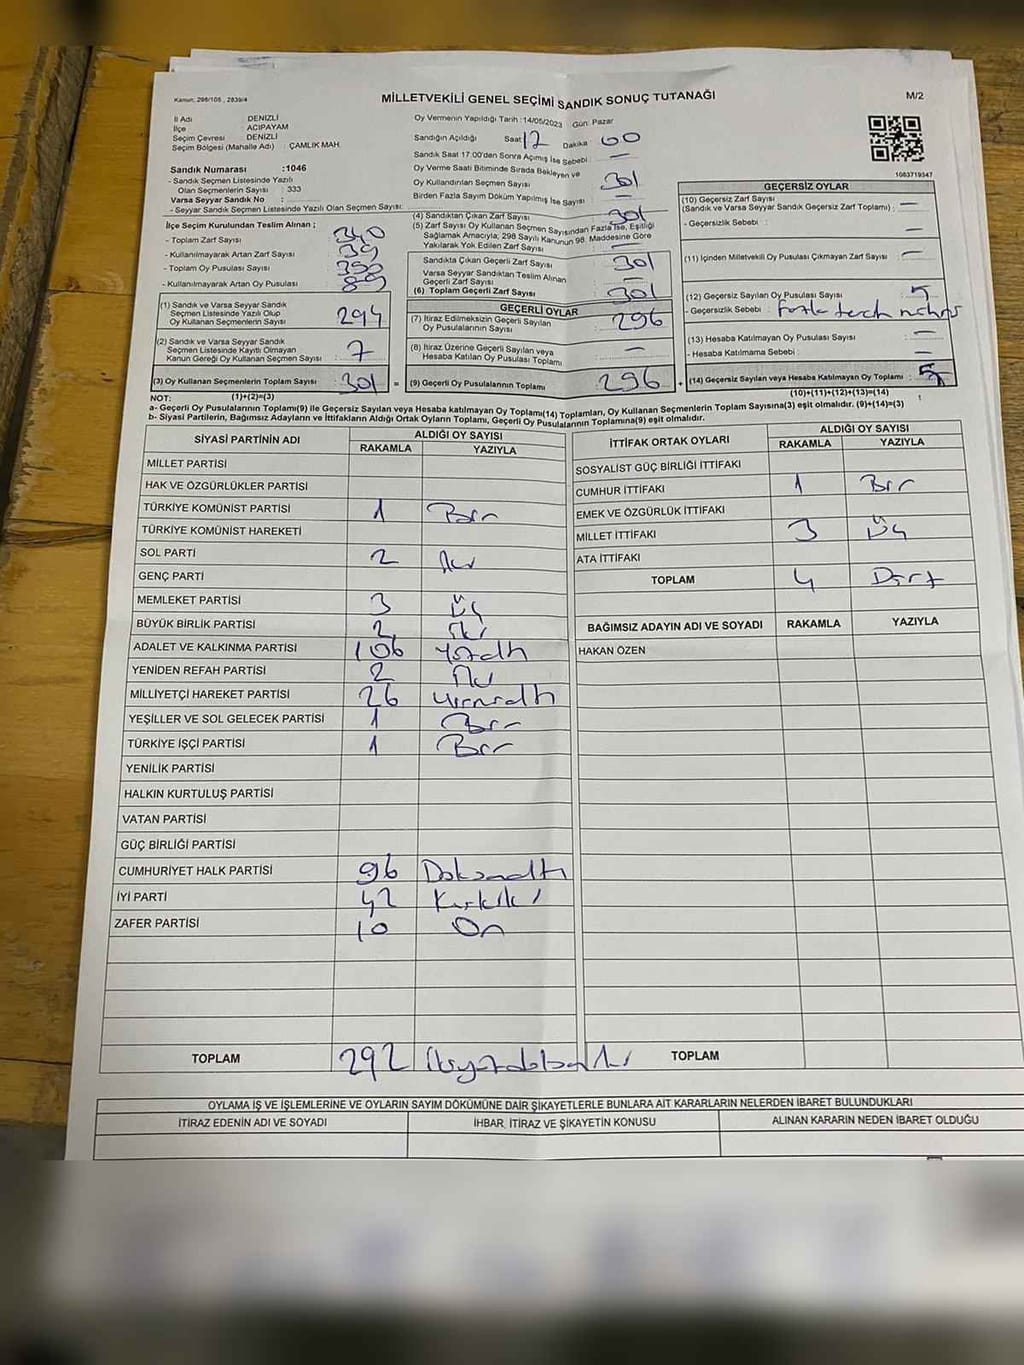 Kanun: 298/105 , 2839/4
MİLLETVEKİLİ GENEL SEÇİMİ SANDIK SONUÇ TUTANAĞI
M/2
İl Adı DENİZLİ
İlçe ACIPAYAM
Seçim Çevresi DENİZLİ
Seçim Bölgesi (Mahalle Adı) ÇAMLIK MAH.
Sandık Numarası :1046
- Sandık Seçmen Listesinde Yazılı
Olan Seçmenlerin Sayısı : 333
Varsa Seyyar Sandık No :
- Seyyar Sandık Seçmen Listesinde Yazılı Olan Seçmen Sayısı:
İlçe Seçim Kurulundan Teslim Alınan ;
- Toplam Zarf Sayısı : 340
- Kullanılmayarak Artan Zarf Sayısı : 39
- Toplam Oy Pusulası Sayısı :
- Kullanılmayarak Artan Oy Pusulası :
(1) Sandık ve Varsa Seyyar Sandık
Seçmen Listesinde Yazılı Olup
Oy Kullanan Seçmenlerin Sayısı : 294
(2) Sandık ve Varsa Seyyar Sandık
Seçmen Listesinde Kaydı Olmayan
Kanun Gereği Oy Kullanan Seçmen Sayısı : 7
(3) Oy Kullanan Seçmenlerin Toplam Sayısı : 301 =
(1)+(2)=(3)
Oy Vermenin Yapıldığı Tarih :14/05/2023 Gün: Pazar
Sandığın Açıldığı Saat 17 Dakika : 00
Sandık Saat 17:00'den Sonra Açımış İse Sebebi : —
Oy Verme Saati Bitiminde Sırada Bekleyen ve
Oy Kullandırılan Seçmen Sayısı : 301
Birden Fazla Sayım Döküm Yapılmış İse Sayısı : —
(4) Sandıktan Çıkan Zarf Sayısı : 301
(5) Zarf Sayısı Oy Kullanan Seçmen Sayısından Fazla İse, Eşitliği
Sağlamak Amacıyla; 298 Sayılı Kanunun 98. Maddesine Göre
Yakılarak Yok Edilen Zarf Sayısı : —
Sandıkta Çıkan Geçerli Zarf Sayısı : 301
Varsa Seyyar Sandıktan Teslim Alınan
Geçerli Zarf Sayısı : —
(6) Toplam Geçerli Zarf Sayısı : 301
GEÇERLİ OYLAR
(7) İtiraz Edilmeksizin Geçerli Sayılan
Oy Pusulalarının Sayısı : 296
(8) İtiraz Üzerine Geçerli Sayılan veya
Hesaba Katılan Oy Pusulası Toplamı : —
(9) Geçerli Oy Pusulalarının Toplamı : 296 +
1083719347
GEÇERSİZ OYLAR
(10) Geçersiz Zarf Sayısı
(Sandık ve Varsa Seyyar Sandık Geçersiz Zarf Toplamı) : —
- Geçersiz Sebebi : —
(11) İçinden Milletvekili Oy Pusulası Çıkmayan Zarf Sayısı : —
(12) Geçersiz Sayılan Oy Pusulası Sayısı : 5
- Geçersizlik Sebebi : Fazla tercih
(13) Hesaba Katılmayan Oy Pusulası Sayısı : —
- Hesaba Katılmama Sebebi : —
(14) Geçersiz Sayılan veya Hesaba Katılmayan Oy Toplamı : 5
(10)+(11)+(12)+(13)=(14)
NOT:
a- Geçerli Oy Pusulalarının Toplamı(9) ile Geçersiz Sayılan veya Hesaba katılmayan Oy Toplamı(14) Toplamları, Oy Kullanan Seçmenlerin Toplam Sayısına(3) eşit olmalıdır. (9)+(14)=(3)
b- Siyasi Partilerin, Bağımsız Adayların ve İttifakların Aldığı Ortak Oyların Toplamı, Geçerli Oy Pusulalarının Toplamına(9) eşit olmalıdır.
SİYASİ PARTİNİN ADI ALDIĞI OY SAYISI
RAKAMLA YAZIYLA
MİLLET PARTİSİ
HAK VE ÖZGÜRLÜKLER PARTİSİ
TÜRKİYE KOMÜNİST PARTİSİ 1 Bir
TÜRKİYE KOMÜNİST HAREKETİ
SOL PARTİ 2 İki
GENÇ PARTİ
MEMLEKET PARTİSİ 3 Üç
BÜYÜK BİRLİK PARTİSİ 2 İki
ADALET VE KALKINMA PARTİSİ 106 Yüzaltı
YENİDEN REFAH PARTİSİ 2 İki
MİLLİYETÇİ HAREKET PARTİSİ 26 Yirmialtı
YEŞİLLER VE SOL GELECEK PARTİSİ 1 Bir
TÜRKİYE İŞÇİ PARTİSİ 1 Bir
YENİLİK PARTİSİ
HALKIN KURTULUŞ PARTİSİ
VATAN PARTİSİ
GÜÇ BİRLİĞİ PARTİSİ
CUMHURİYET HALK PARTİSİ 96 Doksanaltı
İYİ PARTİ 42 Kırkiki
ZAFER PARTİSİ 10 On
TOPLAM 292 İkiyüzdoksaniki
İTTİFAK ORTAK OYLARI ALDIĞI OY SAYISI
RAKAMLA YAZIYLA
SOSYALİST GÜÇ BİRLİĞİ İTTİFAKI
CUMHUR İTTİFAKI 1 Bir
EMEK VE ÖZGÜRLÜK İTTİFAKI
MİLLET İTTİFAKI 3 Üç
ATA İTTİFAKI
TOPLAM 4 Dört
BAĞIMSIZ ADAYIN ADI VE SOYADI RAKAMLA YAZIYLA
HAKAN ÖZEN
TOPLAM
OYLAMA İŞ VE İŞLEMLERİNE VE OYLARIN SAYIM DÖKÜMÜNE DAİR ŞİKAYETLERLE BUNLARA AİT KARARLARIN NELERDEN İBARET BULUNDUKLARI
İTİRAZ EDENİN ADI VE SOYADI İHBAR, İTİRAZ VE ŞİKAYETİN KONUSU ALINAN KARARIN NEDEN İBARET OLDUĞU